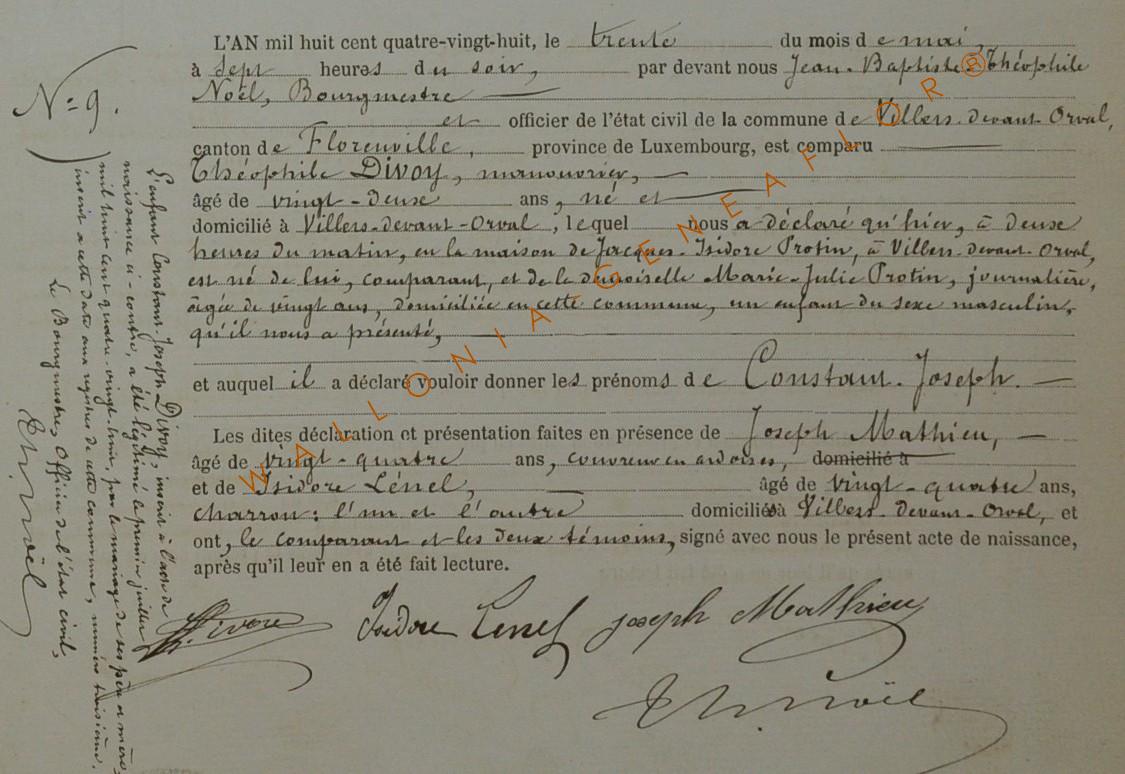 L'AN mil huit cent quatre-vingt-huit, le trente du mois de mai,
à sept heures du soir, par devant nous Jean-Baptiste-Théophile
Noël, Bourgmestre
et officier de l'état civil de la commune de Villers-devant-Orval,
canton de Florenville, province de Luxembourg, est comparu
Théophile Divoy, manouvrier,
âgé de vingt-deux ans, né et
domicilié à Villers-devant-Orval, lequel nous a déclaré qu'hier, à deux
heures du matin, en la maison de Jacques-Isidore Protin, à Villers-devant-Orval,
est né de lui, comparant, et de la demoiselle Marie-Julie Protin, journalière,
âgée de vingt ans, domiciliée en cette commune, un enfant du sexe masculin,
qu'il nous a présenté,
et auquel il a déclaré vouloir donner les prénoms de Constant-Joseph.
Les dites déclaration et présentation faites en présence de Joseph Mathieu,
âgé de vingt-quatre ans, couvreur en ardoises, domicilié à
et de Isidore Lénel, âgé de vingt-quatre ans,
charron; l'un et l'autre domiciliés à Villers-devant-Orval, et
ont, le comparant et les deux témoins, signé avec nous le présent acte de naissance,
après qu'il leur en a été fait lecture.
Isidore Lenel Joseph Mathieu
Th. Noël
N° 9.
L'enfant Constant-Joseph Divoy, inscrit à l'acte de
naissance ci-contre, a été légitimé le premier juillet
mil huit cent quatre-vingt-huit, par le mariage de ses père et mère,
inscrit à cette date aux registres de cette commune, numéro troisième.
Le Bourgmestre, Officier de l'état civil,
Th. Noël
WALLONIA GENEAFLOR ®